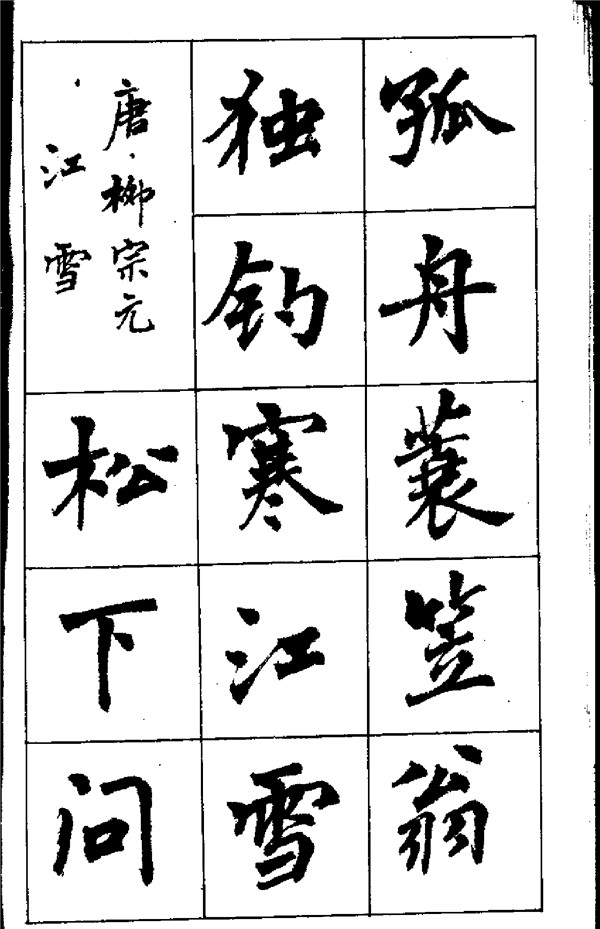 孤舟蓑笠翁
独钓寒江雪
唐·柳宗元
·江雪
松下问